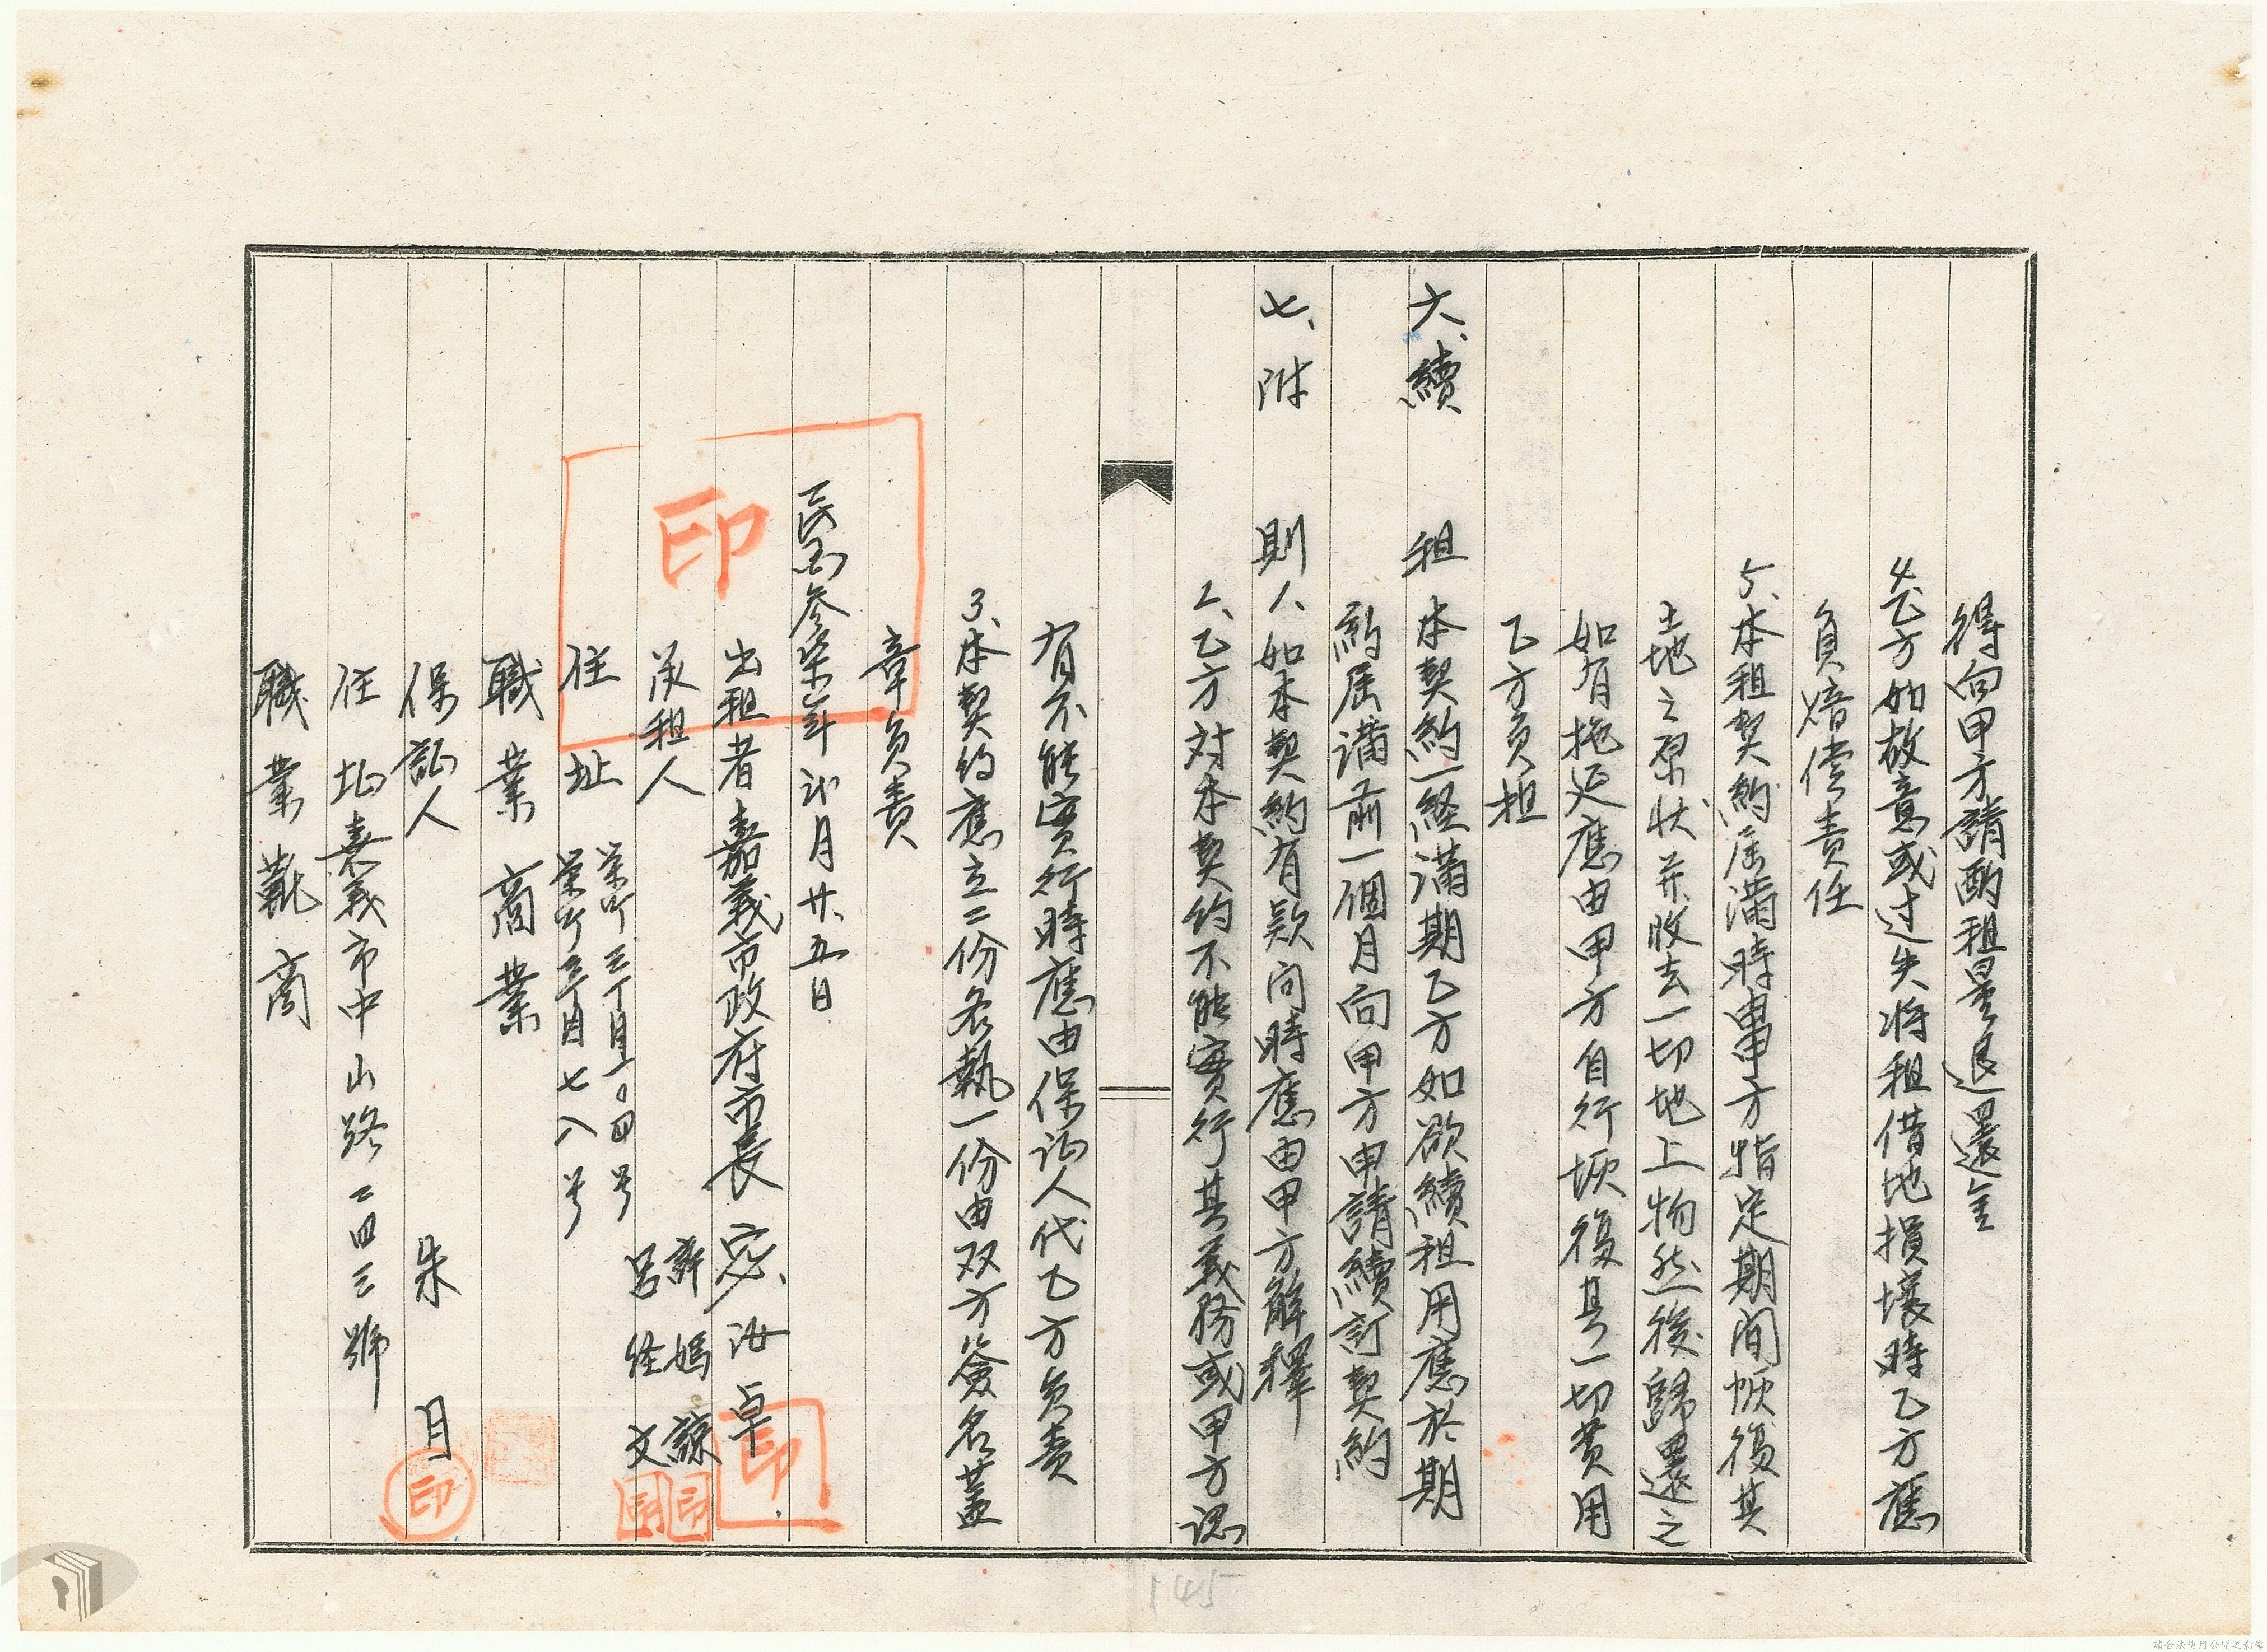 得向甲方請酌租量退還金
4、乙方如故意或过失将租借地損壞時乙方應
負賠償責任
5、本租契約屆滿時由甲方指定期间恢復其
土地之原状并收去一切地上物然後歸還之
如有拖延應由甲方自行恢復其一切費用
乙方負担
六、續租 本契約一経滿期乙方如欲續租用應於期
約屆滿前一個月向甲方申請續訂契約
七、附則 1、如本契約有欵问時應由甲方解釋
2、乙方对本契约不能實行其義務或甲方認
有不能實行時應由保証人代乙方負責
3、本契约應立二份各執一份由双方簽名蓋
章負責
民国参柒年弍月廿五日
出租者嘉義市政府市長宓汝卓 印
印
承租人 許媽諒 印
呂経文 印
住址 栄町三丁目一〇四号
栄町三丁目七八号
職業商業
保証人 朱月 印
住址嘉義市中山路二四三號
職業 商
145
請合法使用公開之影像